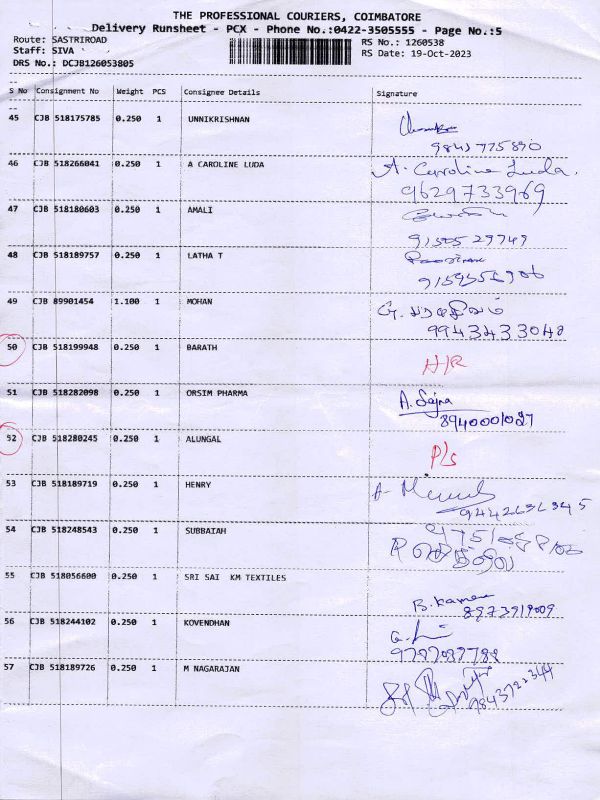 THE PROFESSIONAL COURIERS, COIMBATORE
Delivery Runsheet - PCX - Phone No.:0422-3505555 - Page No.:5
Route: SASTRIROAD
RS No.: 1260538
Staff: SIVA
RS Date: 19-Oct-2023
DRS No.: DCJB126053805
S No Consignment No Weight PCS Consignee Details Signature
45 CJB 518175785 0.250 1 UNNIKRISHNAN
46 CJB 518266041 0.250 1 A CAROLINE LUDA A. Caroline Luda.
9629733969
47 CJB 518180603 0.250 1 AMALI
9150529749
48 CJB 518189757 0.250 1 LATHA T
49 CJB 89901454 1.100 1 MOHAN
9943433040
50 CJB 518199948 0.250 1 BARATH
51 CJB 518282098 0.250 1 ORSIM PHARMA A. Sajna
8940001027
52 CJB 518280245 0.250 1 ALUNGAL
P/s
53 CJB 518189719 0.250 1 HENRY
54 CJB 518248543 0.250 1 SUBBAIAH
55 CJB 518056600 0.250 1 SRI SAI KM TEXTILES
56 CJB 518244102 0.250 1 KOVENDHAN
9787087788
57 CJB 518189726 0.250 1 M NAGARAJAN
9843722344